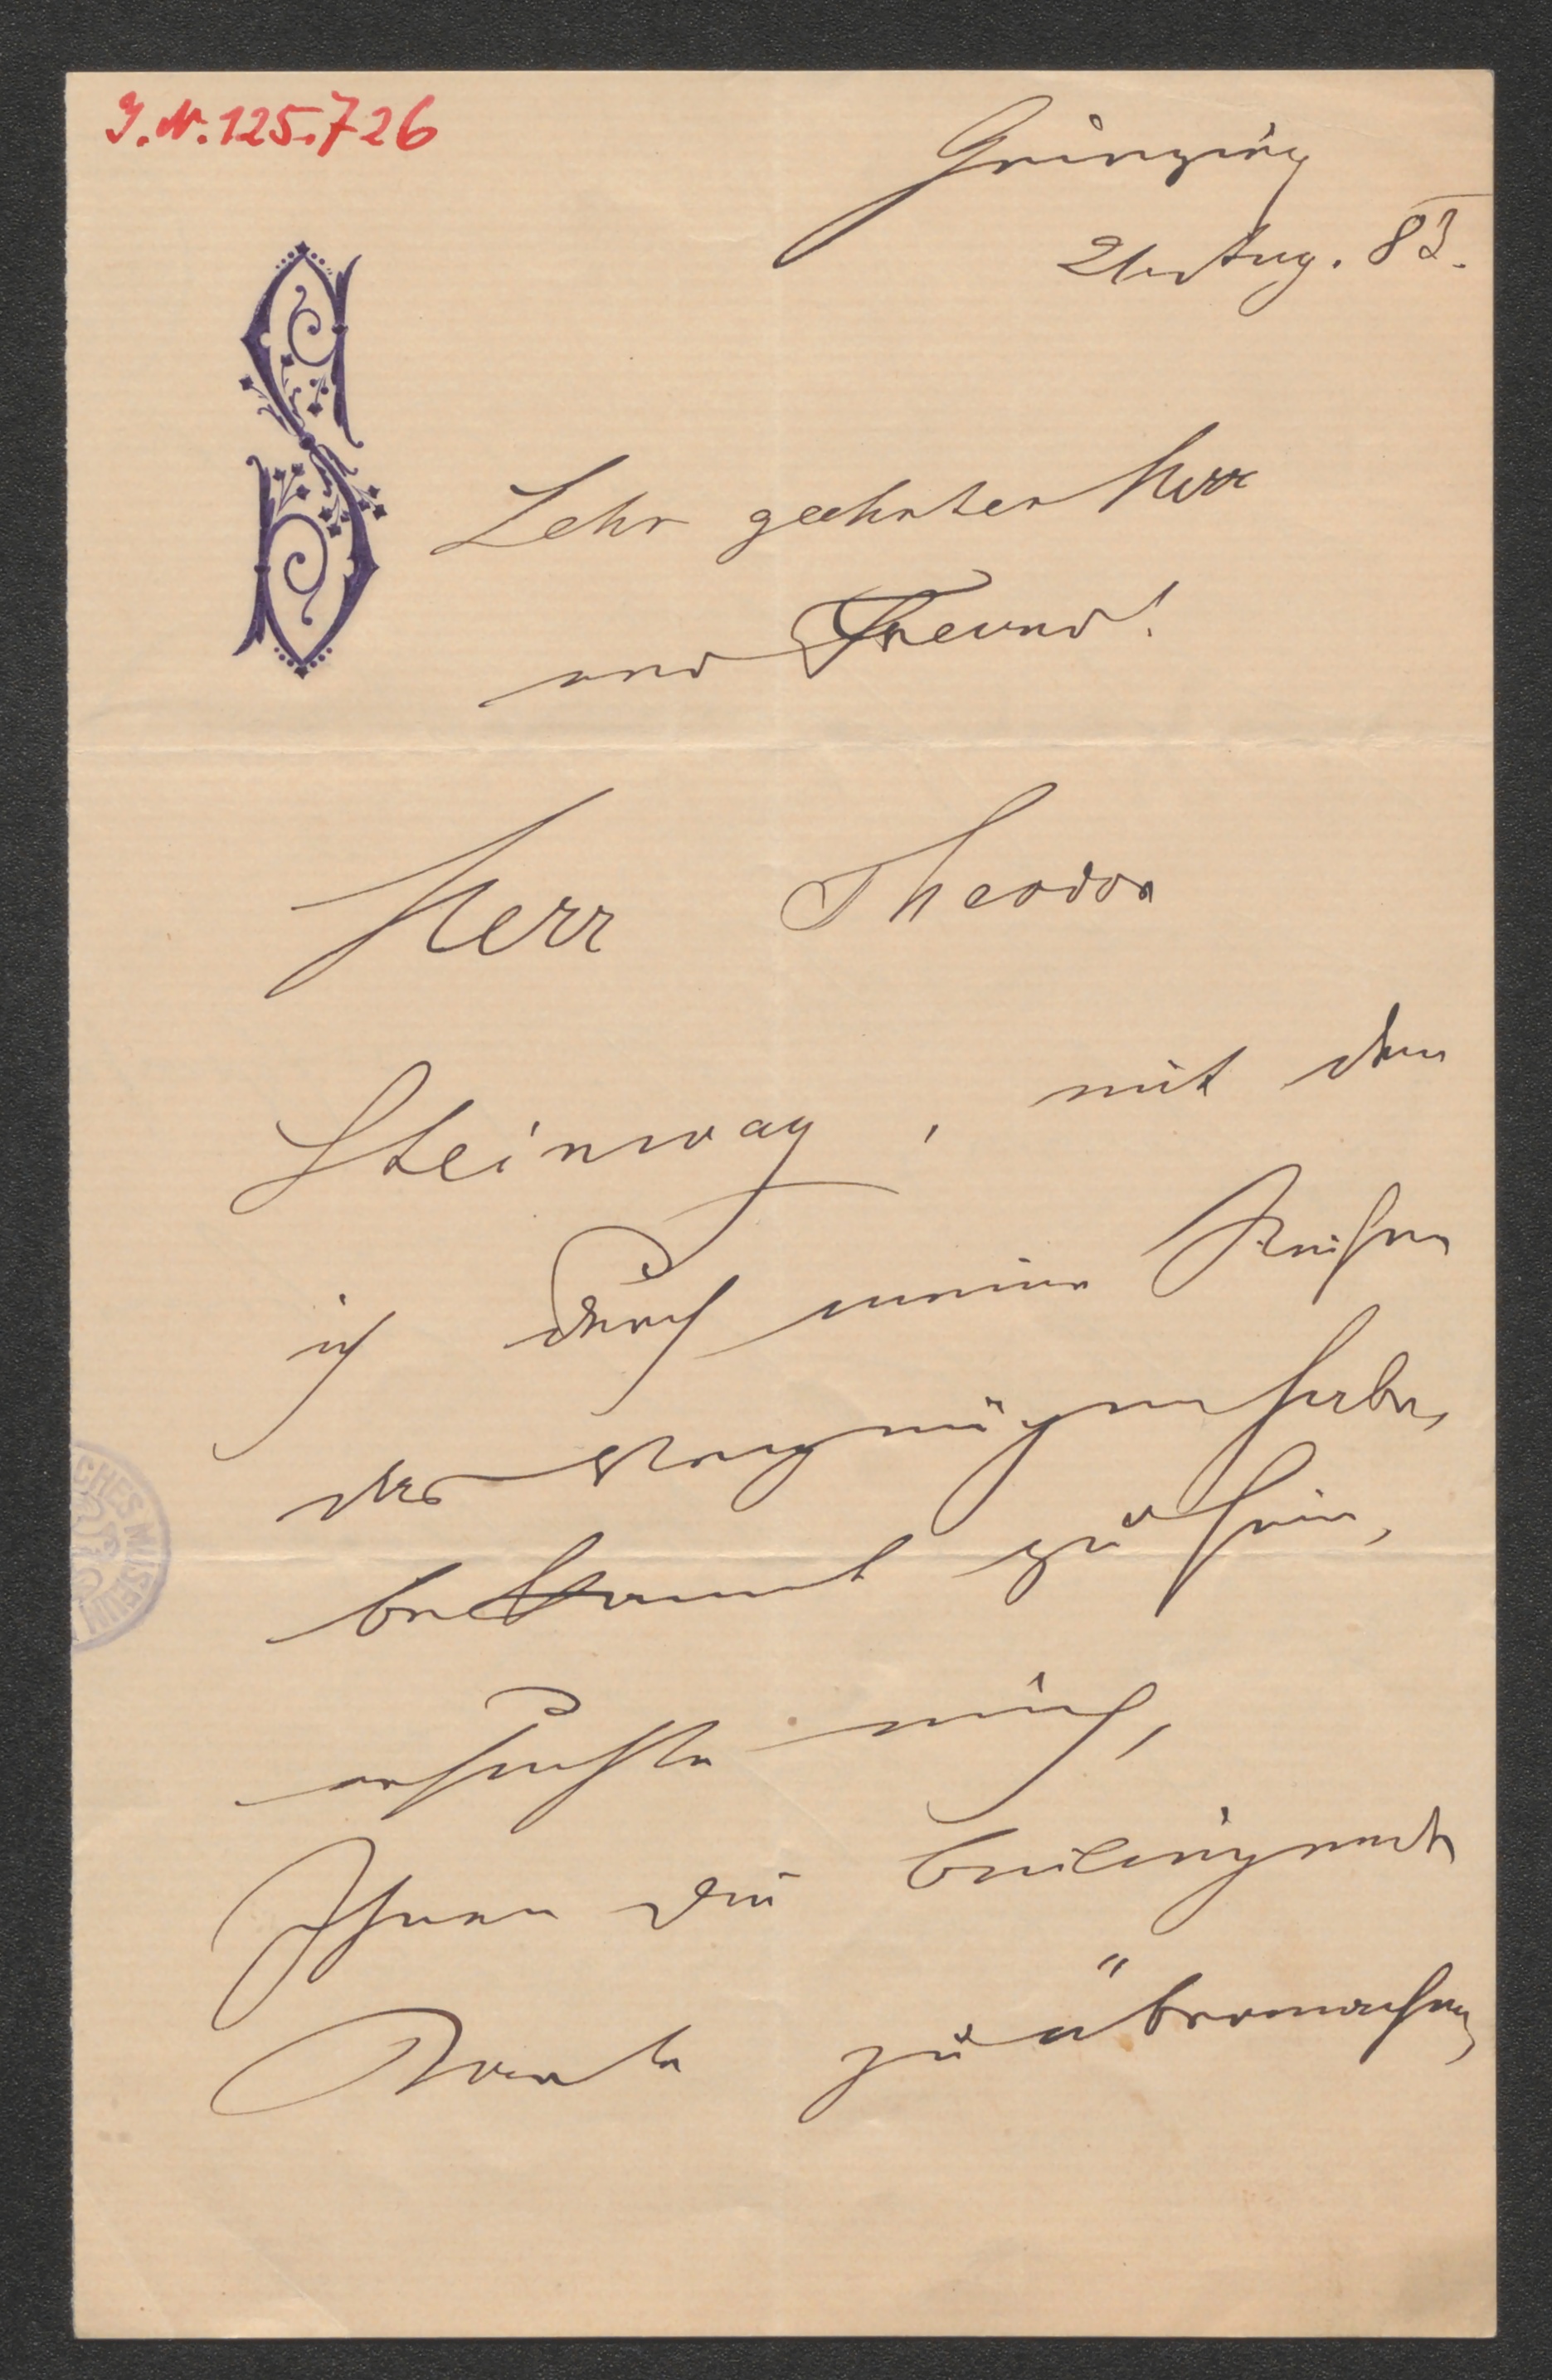 J.N. 125.726
Grinzing
21 Aug. 83.
Sehr geehrter Herr
und Freund!
Herr Theodor
Steinway, mit dem
ich durch meine Reisen
das Vergnügen habe,
bekannt zu sein,
ersuchte mich,
Ihnen die beiliegende
Karte zu übermachen,
CHES MUSEUM